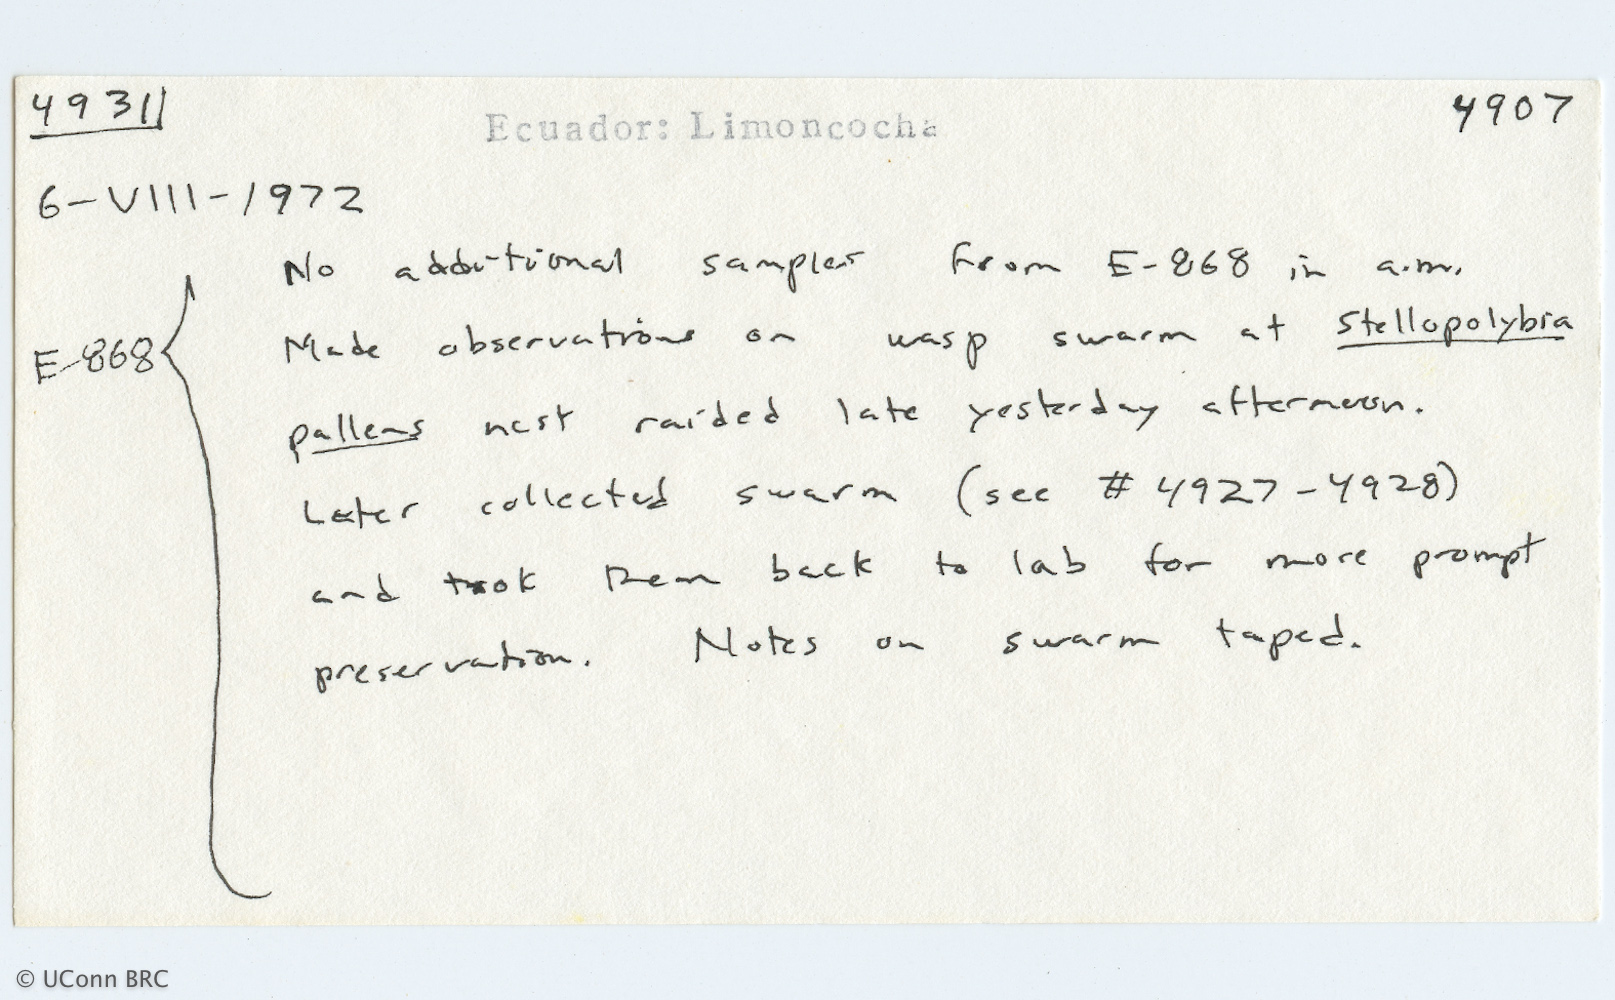 4931
4907
Ecuador: Limoncocha
6-VIII-1972
No additional samples from E-868 in a.m.
E-868
Made observations on wasp swarm at Stellopolybia
pallens nest raided late yesterday afternoon.
Later collected swarm (see # 4927-4928)
and took them back to lab for more prompt
preservation. Notes on swarm taped.
© UConn BRC